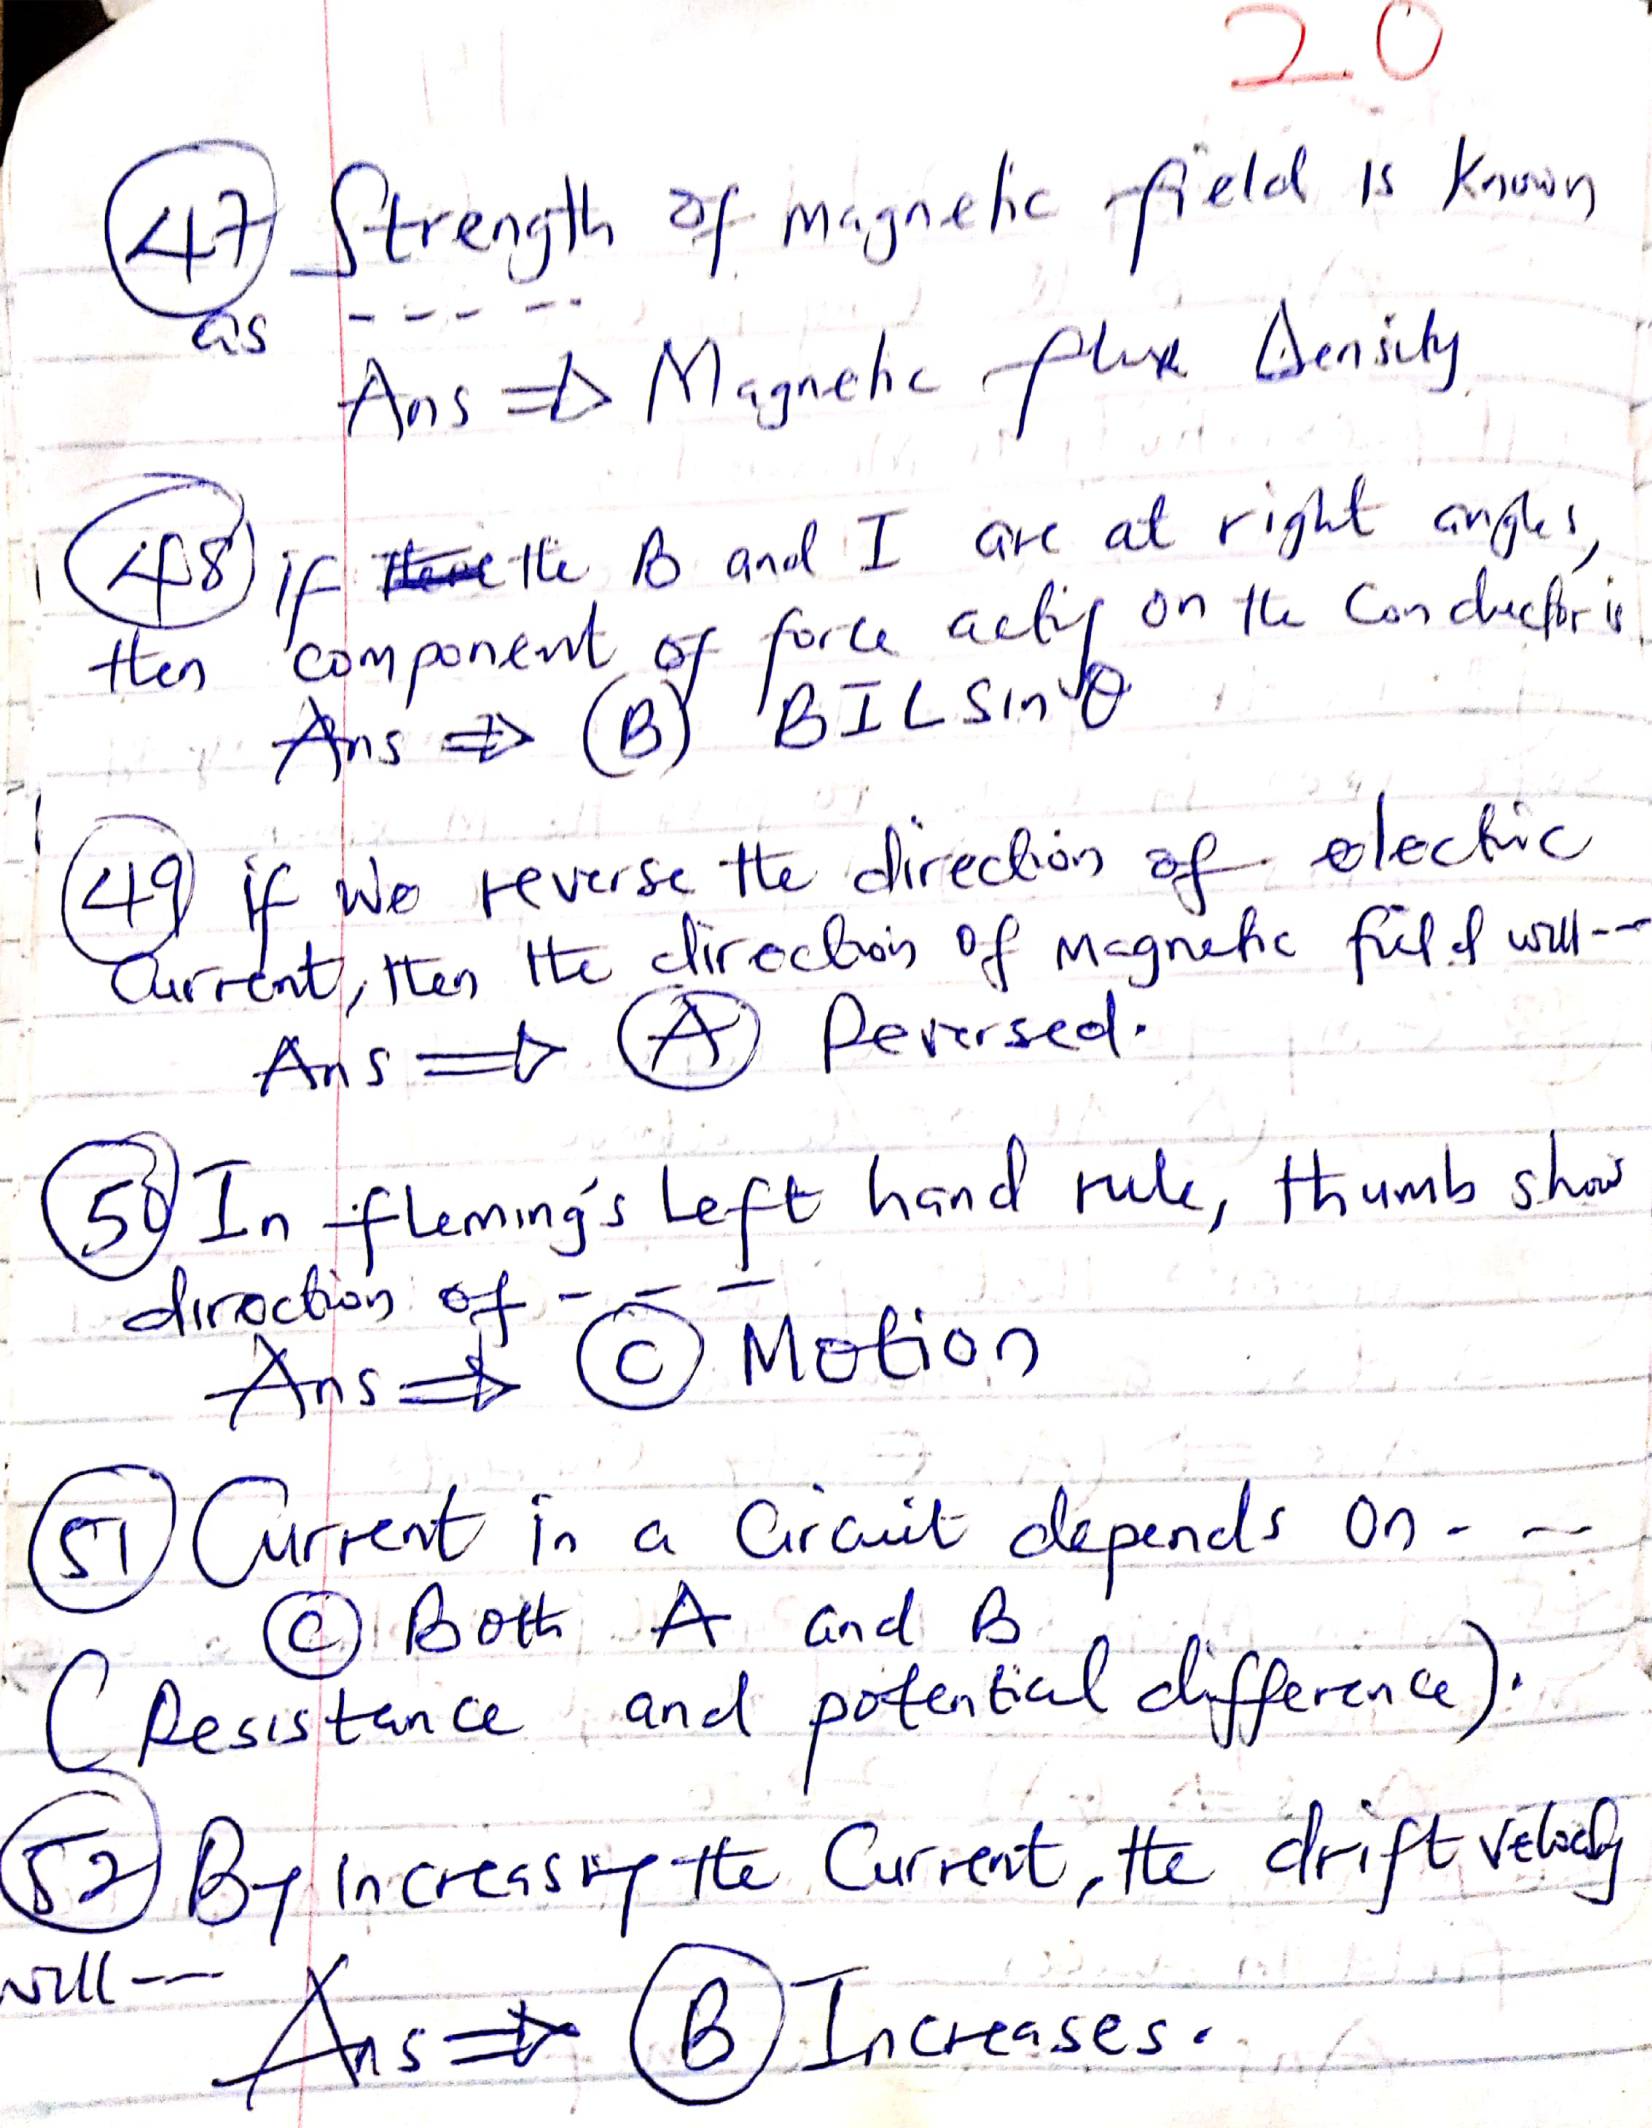 20
47 Strength of magnetic field is known
as -----
Ans ⇒ Magnetic flux Density
48 if the B and I are at right angles,
then component of force acting on the Conductor is
Ans ⇒ (B) BILSinθ
49 if we reverse the direction of electric
Current, then the direction of magnetic field will--
Ans ⇒ (A) Reversed.
50 In fleming's Left hand rule, thumb show
direction of ---
Ans ⇒ (C) Motion
51 Current in a Circuit depends on - --
(C) Both A and B
(Resistance and potential difference).
52 By increasing the Current, the drift velocity
will --
Ans ⇒ (B) Increases.